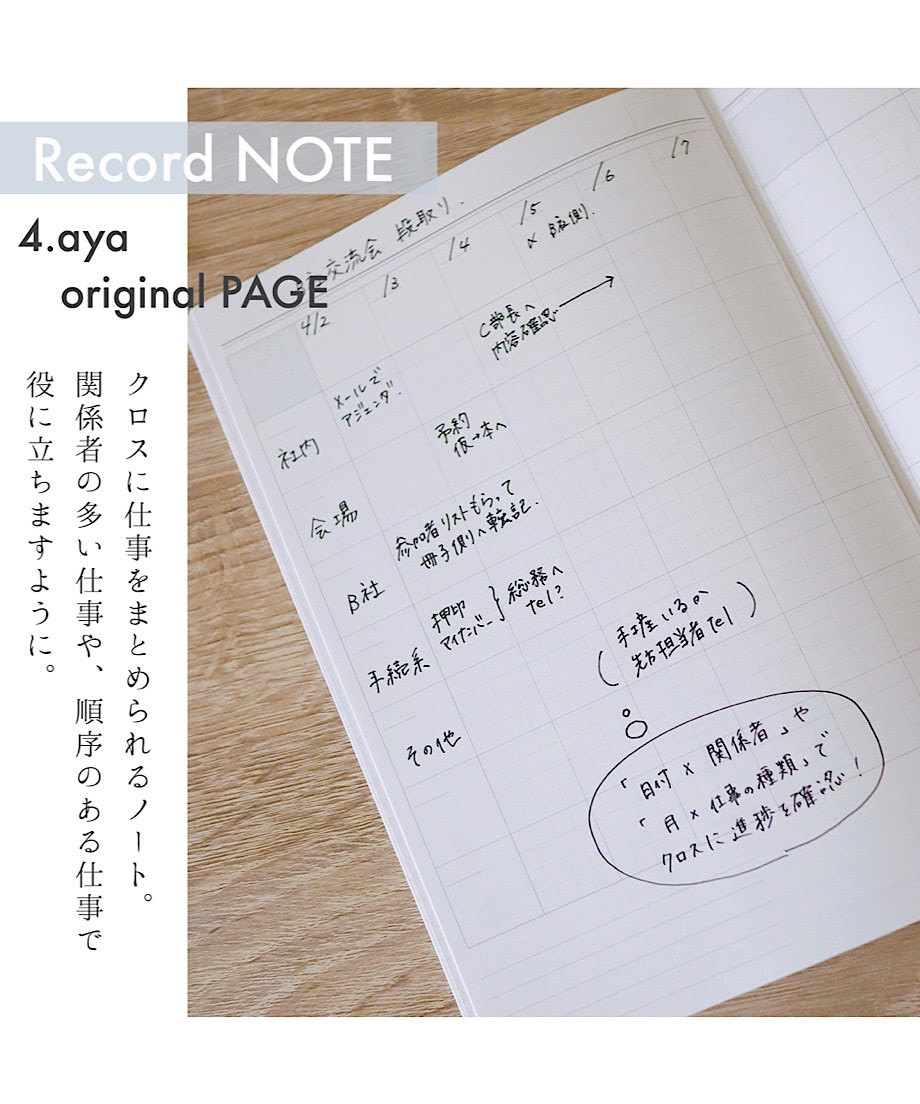 Record NOTE
4.aya
original PAGE
クロスに仕事をまとめられるノート。
関係者の多い仕事や、順序のある仕事で
役に立ちますように。
交流会 段取り.
4/2 /3 /4 /5 /6 /7
〆 B社側.
社内
メールで
アジェンダ.
C部長へ
内容確認
会場
予約
仮→本へ
B社
参加者リストもらって
冊子側へ転記.
手続系
押印
マイナンバー
総務へ
tel?
その他
(手土産いるか
先方担当者tel)
「日付 × 関係者」や
「月×仕事の種類」で
クロスに進捗を確認!